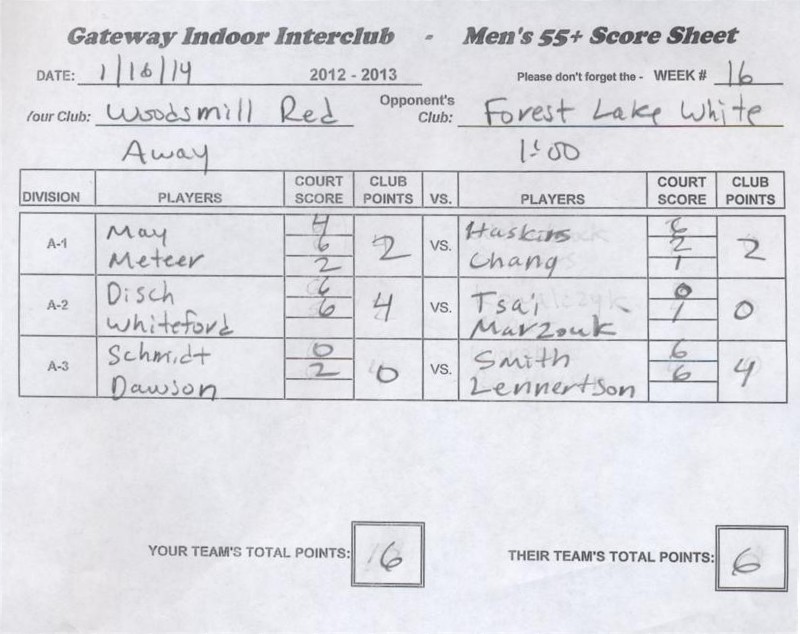 Gateway Indoor Interclub - Men's 55+ Score Sheet
DATE: 1/16/14 2012 - 2013 Please don't forget the - WEEK # 16
Your Club: Woodsmill Red Opponent's Club: Forest Lake White
Away 1:00
DIVISION PLAYERS COURT SCORE CLUB POINTS VS. PLAYERS COURT SCORE CLUB POINTS
A-1 May Meteer 4 6 2 2 VS. Haskins Chang 6 2 1 2
A-2 Disch Whiteford 6 6 4 VS. Tsai Marzouk 0 1 0
A-3 Schmidt Dawson 0 2 0 VS. Smith Lennertson 6 6 4
YOUR TEAM'S TOTAL POINTS: 6 THEIR TEAM'S TOTAL POINTS: 6